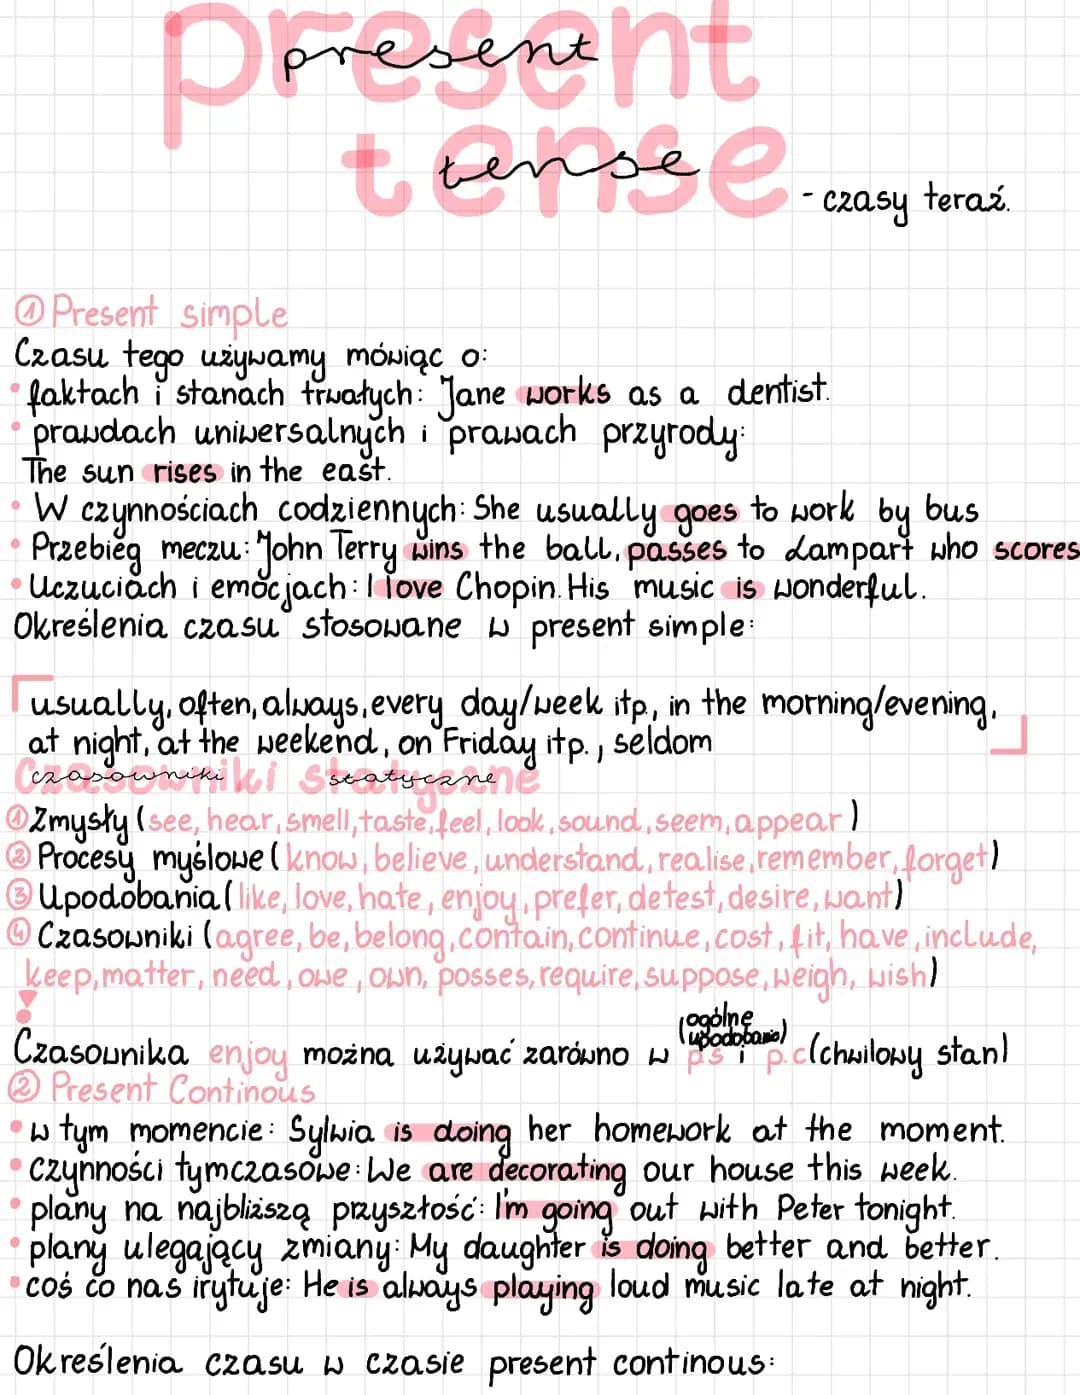 present
tense
- czasy teraź.
① Present simple
Czasu tego używamy mówiąc o:
• faktach i stanach trwałych: Jane works as a dentist.
• prawdach uniwersalnych i prawach przyrody:
The sun rises in the east.
• W czynnościach codziennych: She usually goes to work by bus
• Przebieg meczu: John Terry wins the ball, passes to Lampart who scores
• Uczuciach i emocjach: I love Chopin. His music is wonderful.
Określenia czasu stosowane w present simple:
usually, often, always, every day/week itp., in the morning/evening,
at night, at the weekend, on Friday itp., seldom
czasowniki statyczne
① Zmysły (see, hear, smell, taste, feel, look, sound, seem, appear)
② Procesy myślowe (know, believe, understand, realise, remember, forget)
③ Upodobania (like, love, hate, enjoy, prefer, detest, desire, want)
④ Czasowniki (agree, be, belong, contain, continue, cost, fit, have, include,
keep, matter, need, owe, own, posses, require, suppose, weigh, wish)
!
(ogólne
upodobania)
Czasownika enjoy można używać zarówno w p.s i p.c (chwilowy stan)
② Present Continous
• w tym momencie: Sylwia is doing her homework at the moment.
• czynności tymczasowe: We are decorating our house this week.
• plany na najbliższą przyszłość: I'm going out with Peter tonight.
• plany ulegający zmiany: My daughter is doing better and better.
• coś co nas irytuje: He is always playing loud music late at night.
Określenia czasu w czasie present continous: